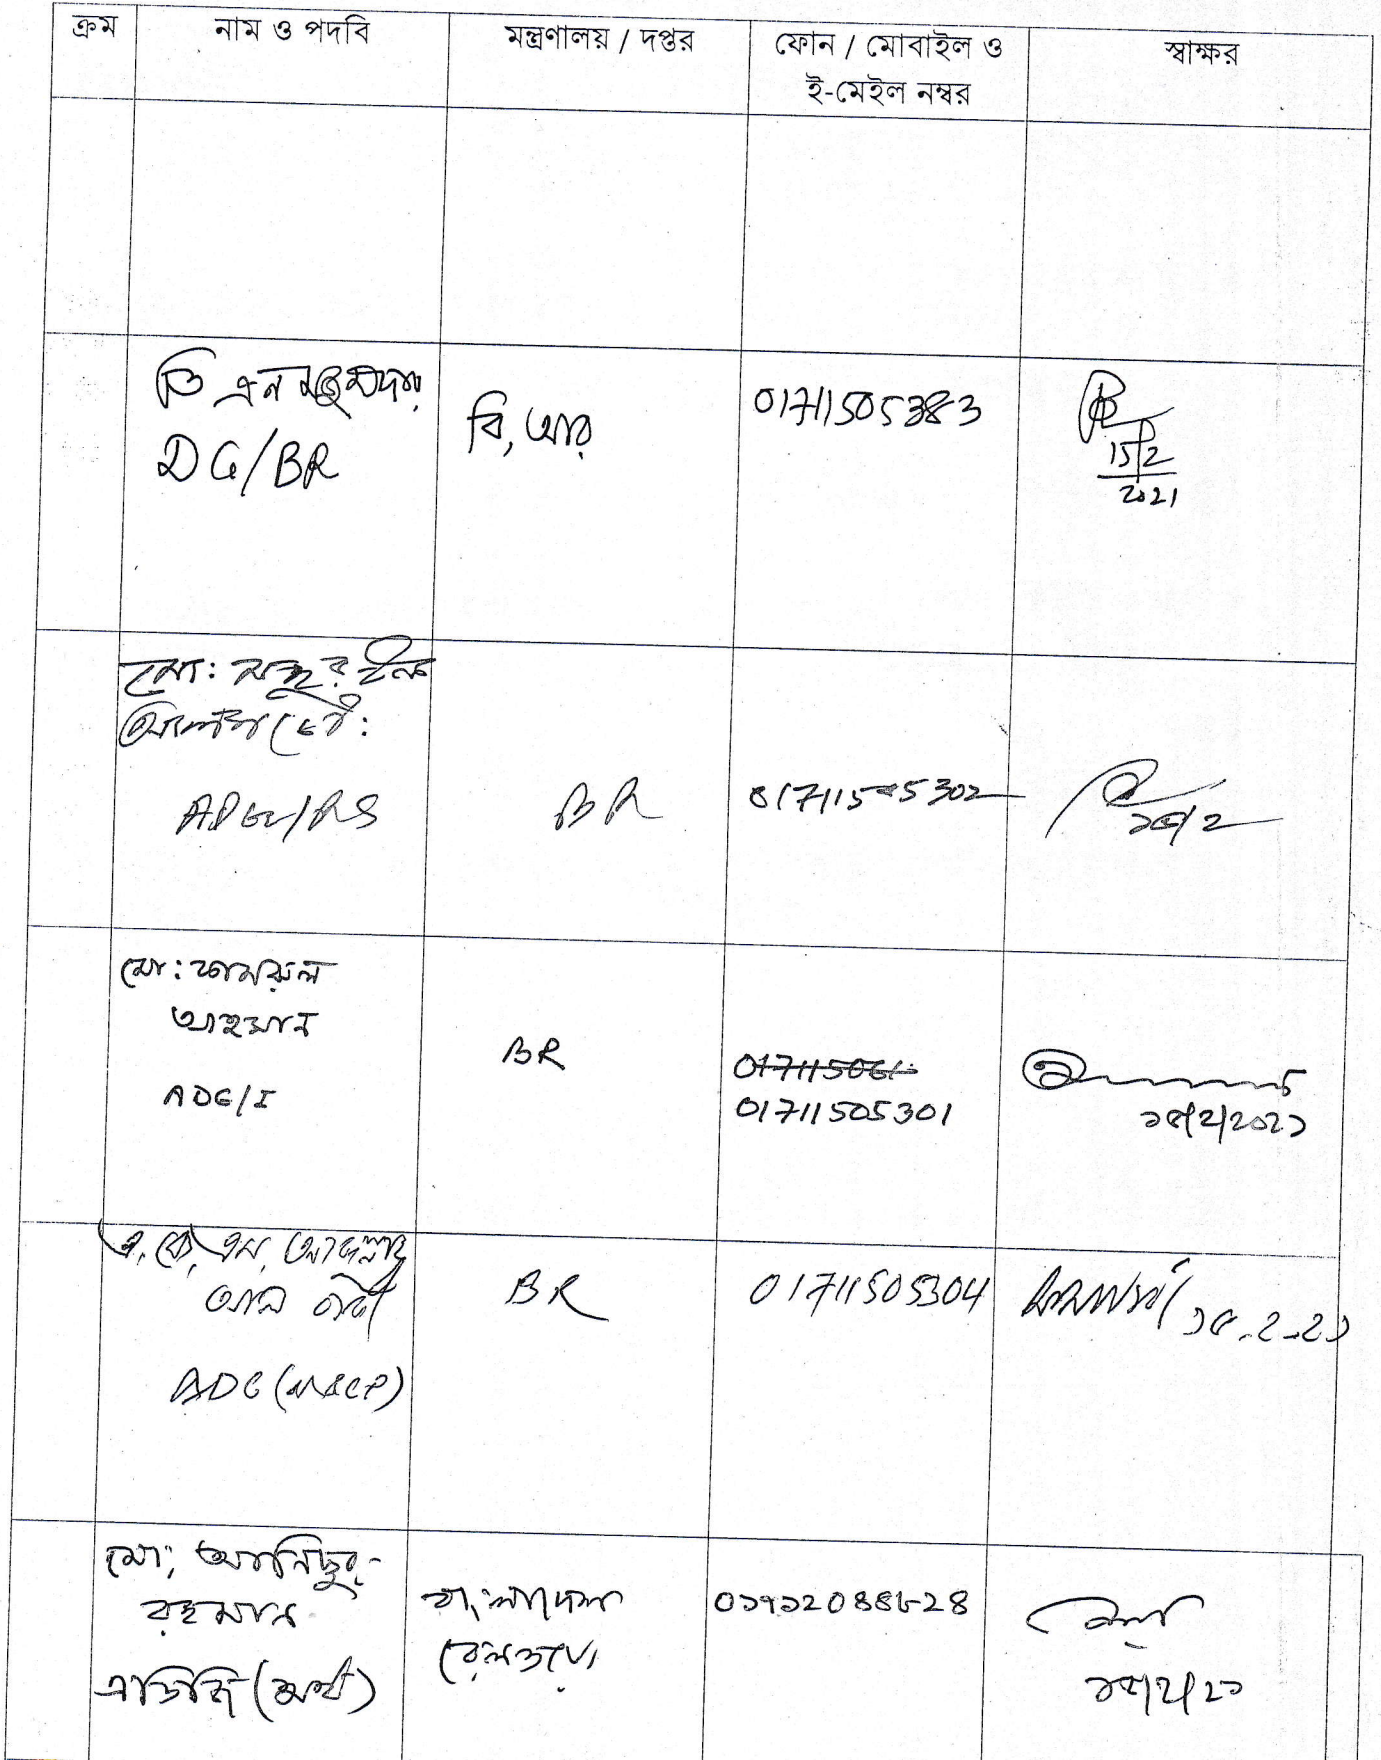 ক্রম
নাম ও পদবি
মন্ত্রণালয় / দপ্তর
ফোন / মোবাইল ও
ই-মেইল নম্বর
স্বাক্ষর
ডি এন মজুমদার
DG/BR
বি, আর
01711505383
15/2
2021
মো: মঞ্জুর
ADG/RS
BR
01711505302
১৫/২
মো: কামরুল
আহসান
ADG/I
BR
01711505301
১৫/২/২০২১
এ, কে, এম, আবদুল্লাহ
আল বাকী
ADG (M&CP)
BR
01711505304
১৫.২.২১
মো: আনিছুর
রহমান
এডিজি (অর্থ)
বাংলাদেশ
রেলওয়ে
০১৭১২০৪৪৮২৪
১৫/২/২১